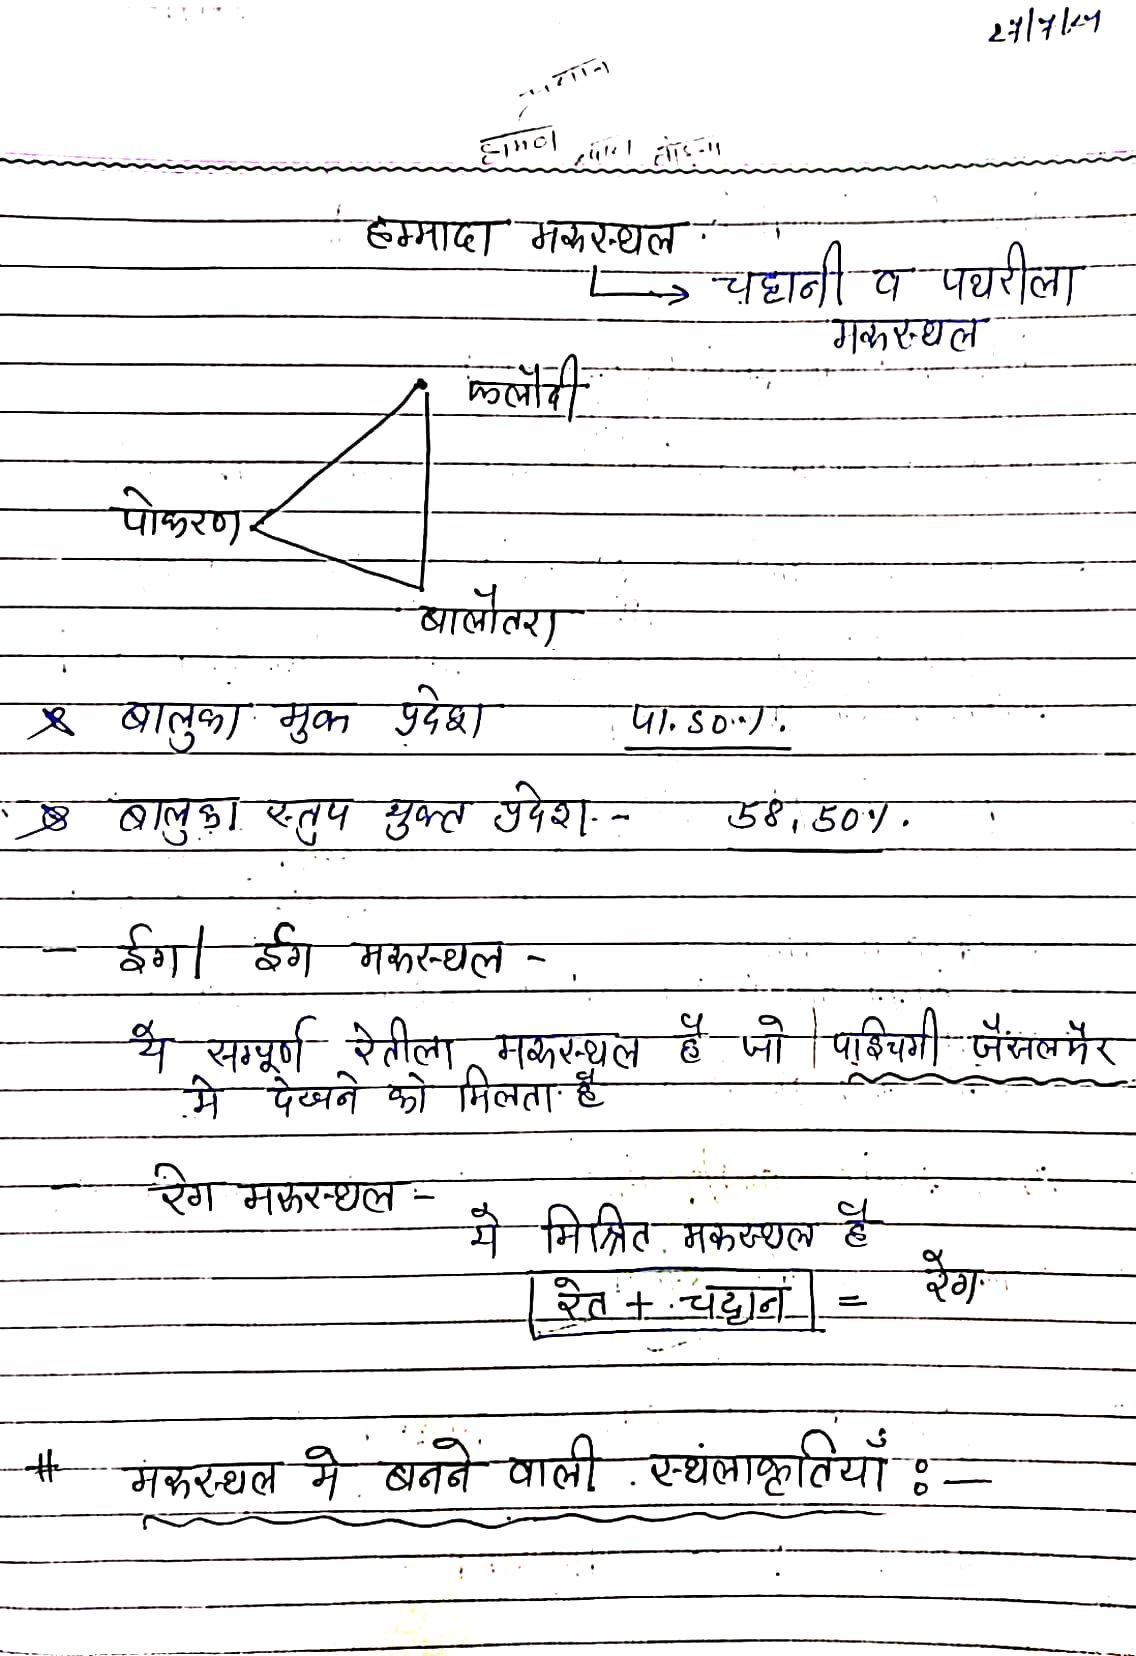 हम्मादा मरूस्थल
चट्टानी व पथरीला
मरूस्थल
फलौदी
पोकरण
बालौतरा
बालुका मुक्त प्रदेश
बालुका स्तुप युक्त प्रदेश :- 58.50%.
- ईग। ईग मरूस्थल -
ये सम्पूर्ण रेतीला मरूस्थल है जो पश्चिमी जैसलमैर
मे देखने को मिलता है
- रेग मरूस्थल -
ये मिश्रित मरूस्थल है
रेत + चट्टान = रेग
# मरूस्थल मे बनने वाली स्थलाकृतियाँ :-